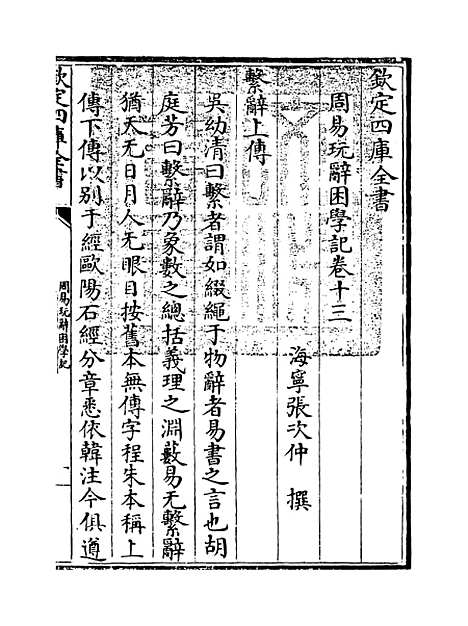 欽定四庫全書
周易玩辭困學記卷十三
海寧張次仲 撰
繫辭上傳
吳幼清曰繫者謂如綴繩于物辭者易書之言也胡
庭芳曰繫辭乃象數之總括義理之淵藪易无繫辭
猶天无日月人无眼目按舊本無傳字程朱本稱上
傳下傳以别于經歐陽石經分章悉依韓注今俱遵
欽定四庫全書
周易玩辭困學記
一